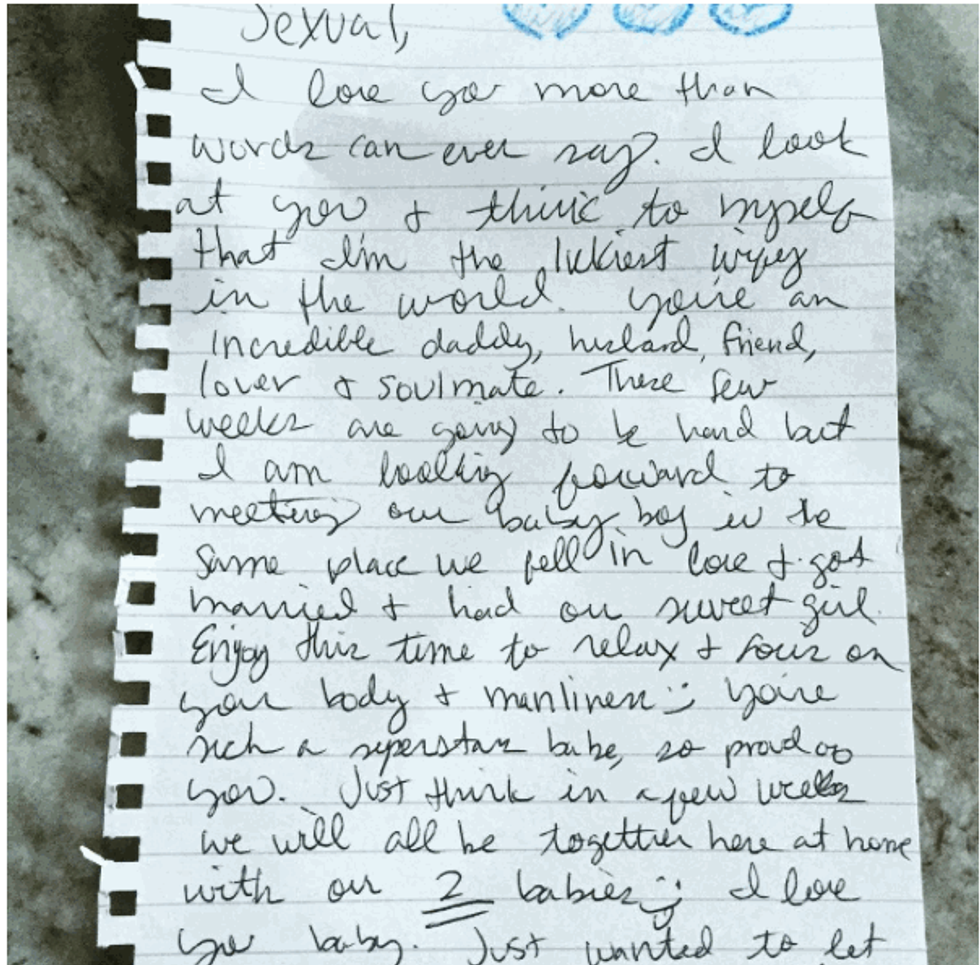 Sexual,
I love you more than
words can ever say. I look
at you & think to myself
that I'm the lukiest wifey
in the world. You're an
incredible daddy, husband, friend,
lover & soulmate. These few
weeks are going to be hard but
I am looking forward to
meeting our baby boy in the
same place we fell in love & got
married & had our sweet girl.
Enjoy this time to relax & focus on
your body & manliness :) You're
such a superstar babe, so proud of
you. Just think in a few weeks
we will all be together here at home
with our 2 babies :) I love
you baby. Just wanted to let